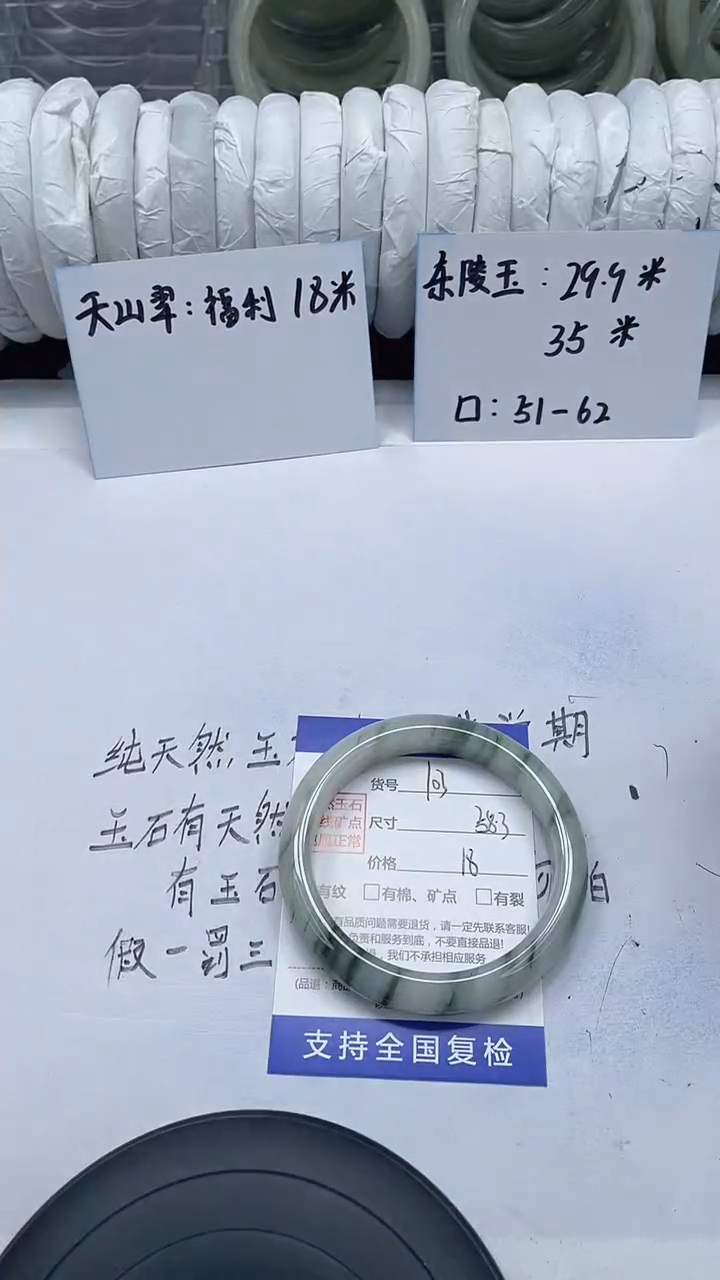 天山翠：福利 18米
东陵玉：29.9米
35米
口：51-62
纯天然，玉
期
玉石有天然
有玉石
自
假一罚三
货号 103
尺寸 58.3
价格 18
然玉石
线矿点
正常
有纹 □有棉、矿点 □有裂
有品质问题需要退货，请一定先联系客服!
负责和服务到底，不要直接品退!
，我们不承担相应服务
(品退：
支持全国复检